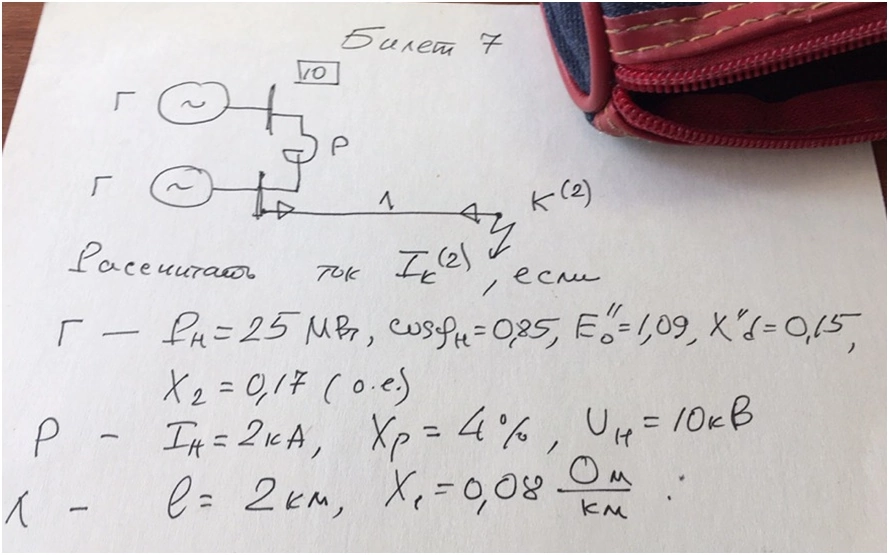 Билет 7
10
Г
Р
Г
Л
К(2)
Расчитать ток Iк(2), если
Г — Рн = 25 МВт, cosφн = 0,85, E"о = 1,09, X"d = 0,15,
X2 = 0,17 (о.е.)
Р — Iн = 2кА, Xр = 4%, Uн = 10кВ
Л — l = 2 км, X1 = 0,08 Ом/км